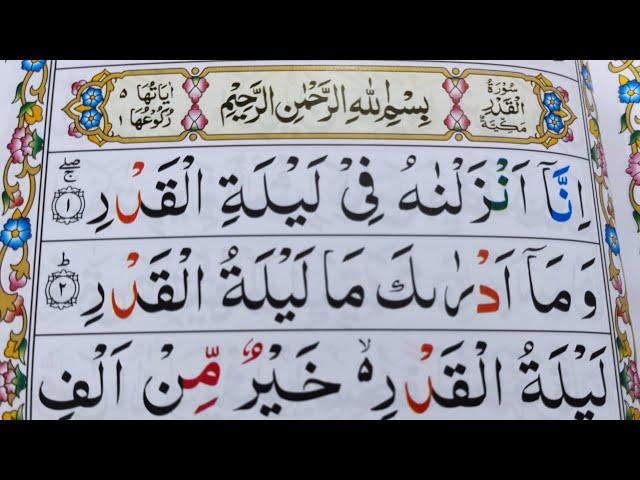 سُوْرَةُ الْقَدْرِ مَكِّيَّةٌ
بِسْمِ اللهِ الرَّحْمٰنِ الرَّحِيْمِ
اٰيَاتُهَا ٥ رُكُوْعُهَا ١
اِنَّاۤ اَنْزَلْنٰهُ فِىْ لَيْلَةِ الْقَدْرِ ۚۖ ﴿١﴾
وَمَاۤ اَدْرٰىكَ مَا لَيْلَةُ الْقَدْرِ ؕ ﴿٢﴾
لَيْلَةُ الْقَدْرِ ۙ۬ خَيْرٌ مِّنْ اَلْفِ